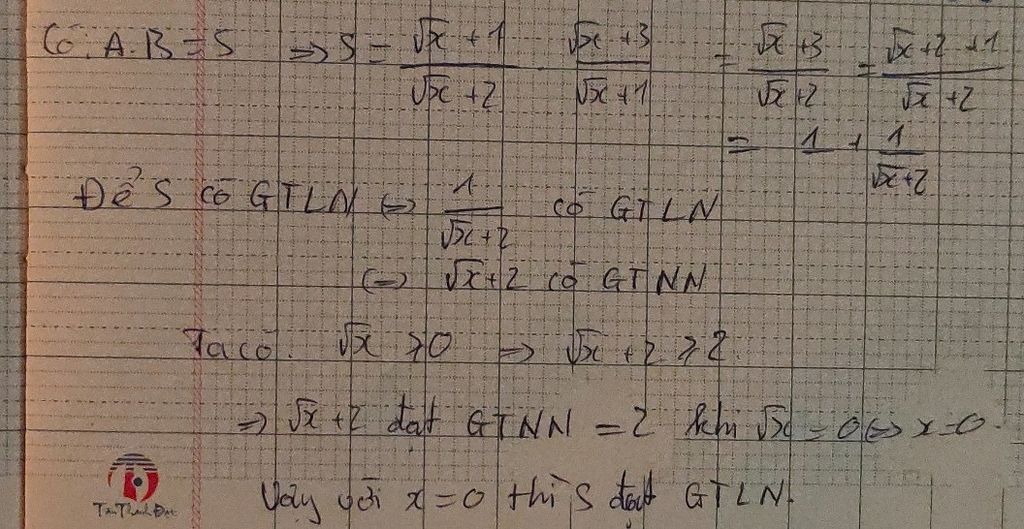 Có: A.B = S => S = (√x + 1)/(√x + 2) . (√x + 3)/(√x + 1) = (√x + 3)/(√x + 2) = (√x + 2 + 1)/(√x + 2)
= 1 + 1/(√x + 2)
Để S có GTLN <=> 1/(√x + 2) có GTLN
<=> √x + 2 có GTNN
Ta có: √x ≥ 0 => √x + 2 ≥ 2
=> √x + 2 đạt GTNN = 2 khi √x = 0 <=> x = 0.
Vậy với x = 0 thì S đạt GTLN.
Tân Thành Đạt